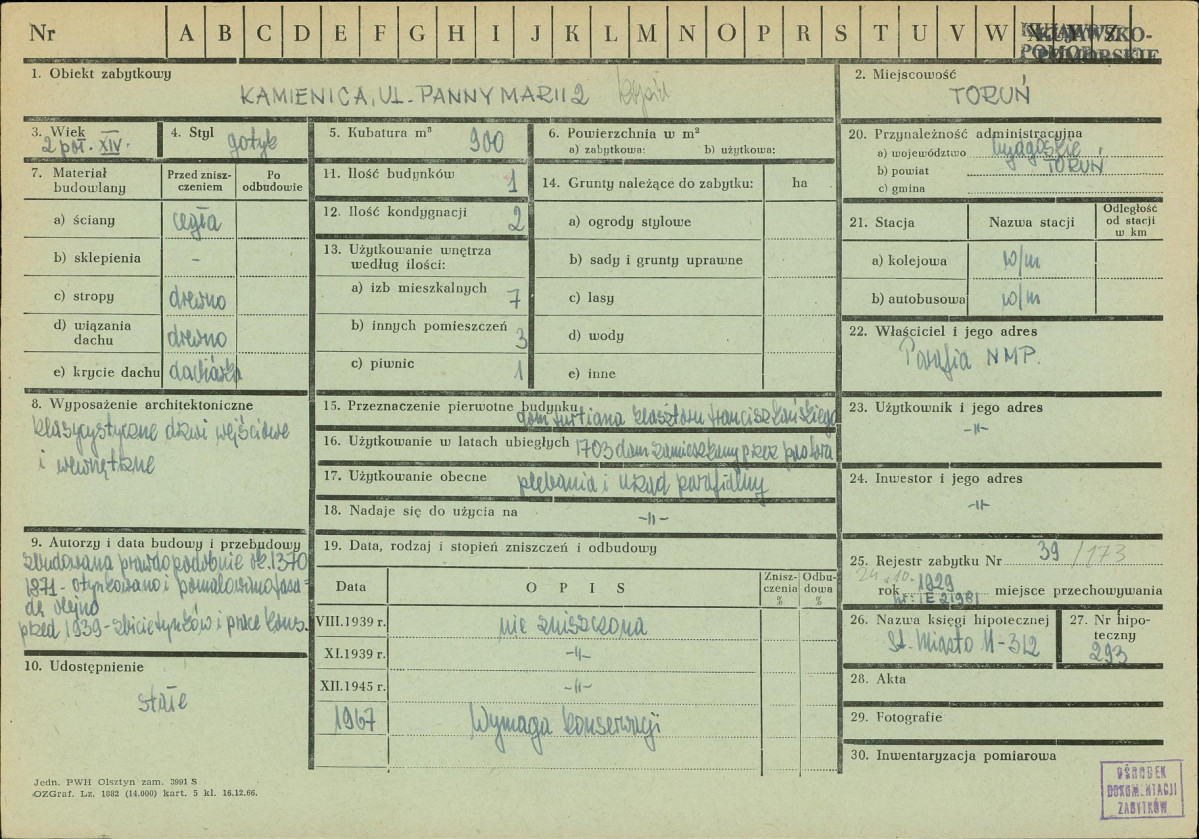 Nr A B C D E F G H I J K L M N O P R S T U V W X Y Z
KUJAWSKO-
POMORSKIE
1. Obiekt zabytkowy
KAMIENICA, UL. PANNY MARII 2
2. Miejscowość
TORUŃ
3. Wiek
2 poł. XIV.
4. Styl
gotyk
5. Kubatura m³
900
6. Powierzchnia w m²
a) zabytkowa: b) użytkowa:
7. Materiał budowlany
Przed zniszczeniem
Po odbudowie
a) ściany cegła
b) sklepienia -
c) stropy drewno
d) wiązania dachu drewno
e) krycie dachu dachówka
8. Wyposażenie architektoniczne
klasycystyczne drzwi wejściowe
i wewnętrzne
9. Autorzy i data budowy i przebudowy
zbudowana prawdopodobnie ok. 1370
1871 - otynkowano i pomalowano fasa-
dę olejno
przed 1939 - zbicie tynków i prace kons.
10. Udostępnienie
stałe
11. Ilość budynków 1
12. Ilość kondygnacji 2
13. Użytkowanie wnętrza
według ilości:
a) izb mieszkalnych 7
b) innych pomieszczeń 3
c) piwnic 1
14. Grunty należące do zabytku: ha
a) ogrody stylowe
b) sady i grunty uprawne
c) lasy
d) wody
e) inne
15. Przeznaczenie pierwotne budynku
dom furtiana klasztoru franciszkańskiego
16. Użytkowanie w latach ubiegłych 1703 dom zamieszkany przez pastora
17. Użytkowanie obecne plebania i urząd parafialny
18. Nadaje się do użycia na -"-
19. Data, rodzaj i stopień zniszczeń i odbudowy
Data OPIS Zniszczenia % Odbudowa %
VIII.1939 r. nie zniszczona
XI.1939 r. -"-
XII.1945 r. -"-
1967 Wymaga konserwacji
20. Przynależność administracyjna
a) województwo bydgoskie
b) powiat TORUŃ
c) gmina
21. Stacja Nazwa stacji Odległość od stacji w km
a) kolejowa w/m
b) autobusowa w/m
22. Właściciel i jego adres
Parafia NMP.
23. Użytkownik i jego adres
-"-
24. Inwestor i jego adres
-"-
25. Rejestr zabytku Nr 39/173
24.10.
rok 1929 miejsce przechowywania
26. Nazwa księgi hipotecznej
St. Miasto M-312
27. Nr hipoteczny
293
28. Akta
29. Fotografie
30. Inwentaryzacja pomiarowa
Jedn. PWH Olsztyn zam. 3991 S
OZGraf. Lz. 1882 (14.000) kart. 5 kl. 16.12.66.
OŚRODEK
DOKUMENTACJI
ZABYTKÓW